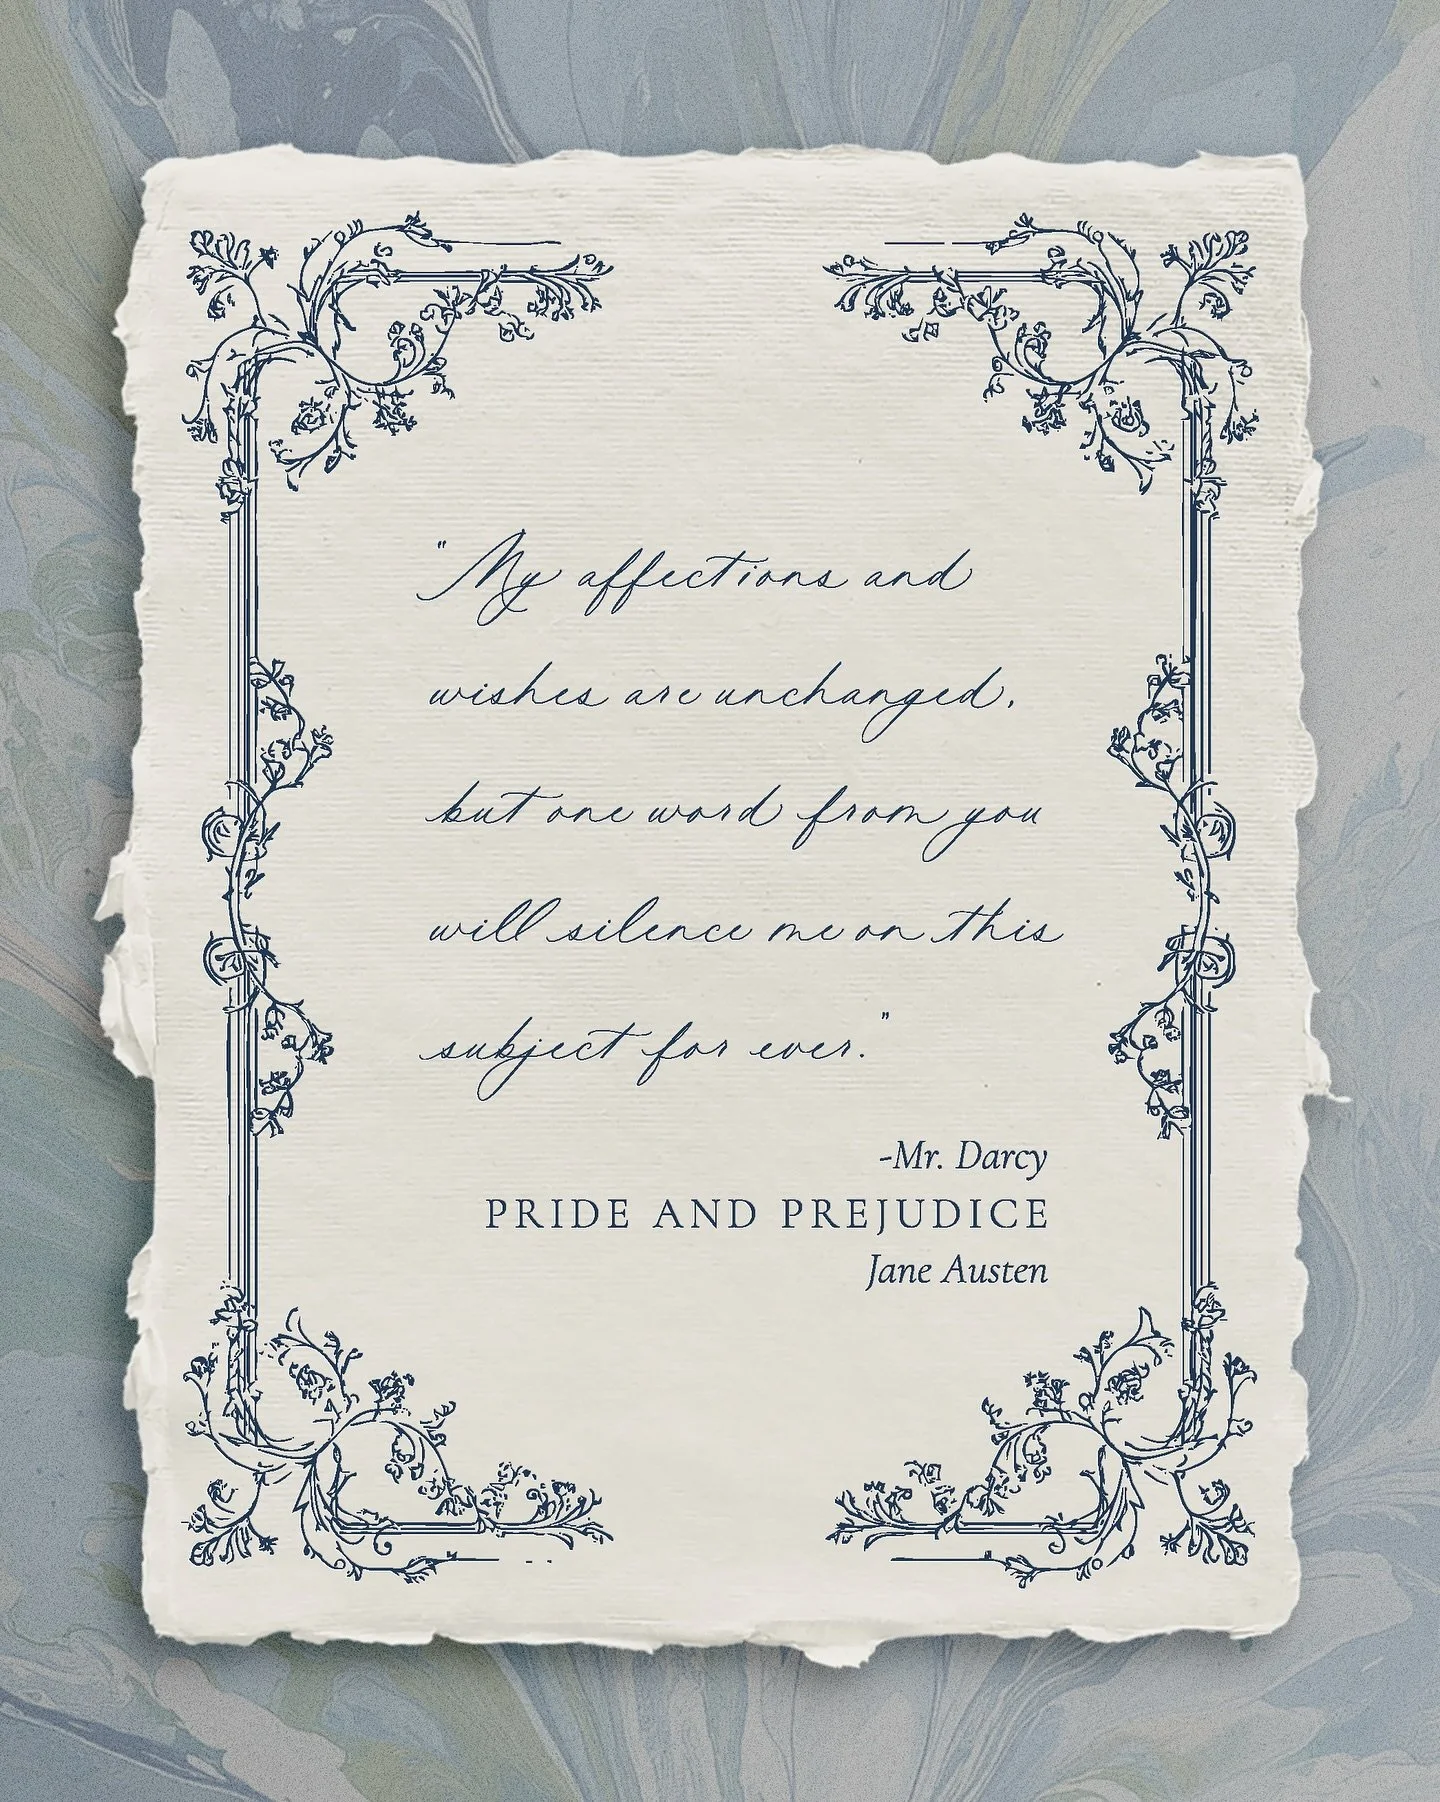 "My affections and
wishes are unchanged,
but one word from you
will silence me on this
subject for ever."
-Mr. Darcy
PRIDE AND PREJUDICE
Jane Austen